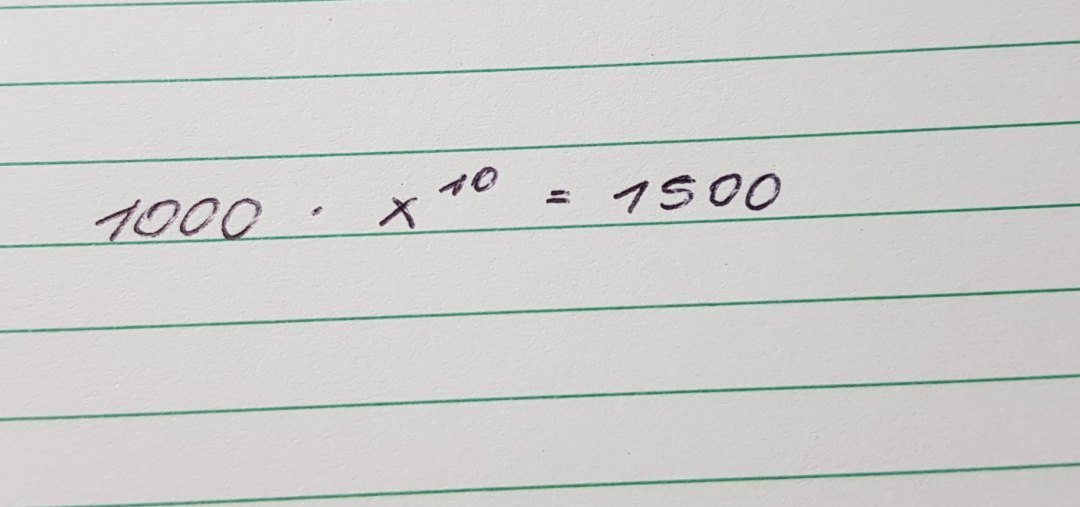 1000 · x¹⁰ = 1500